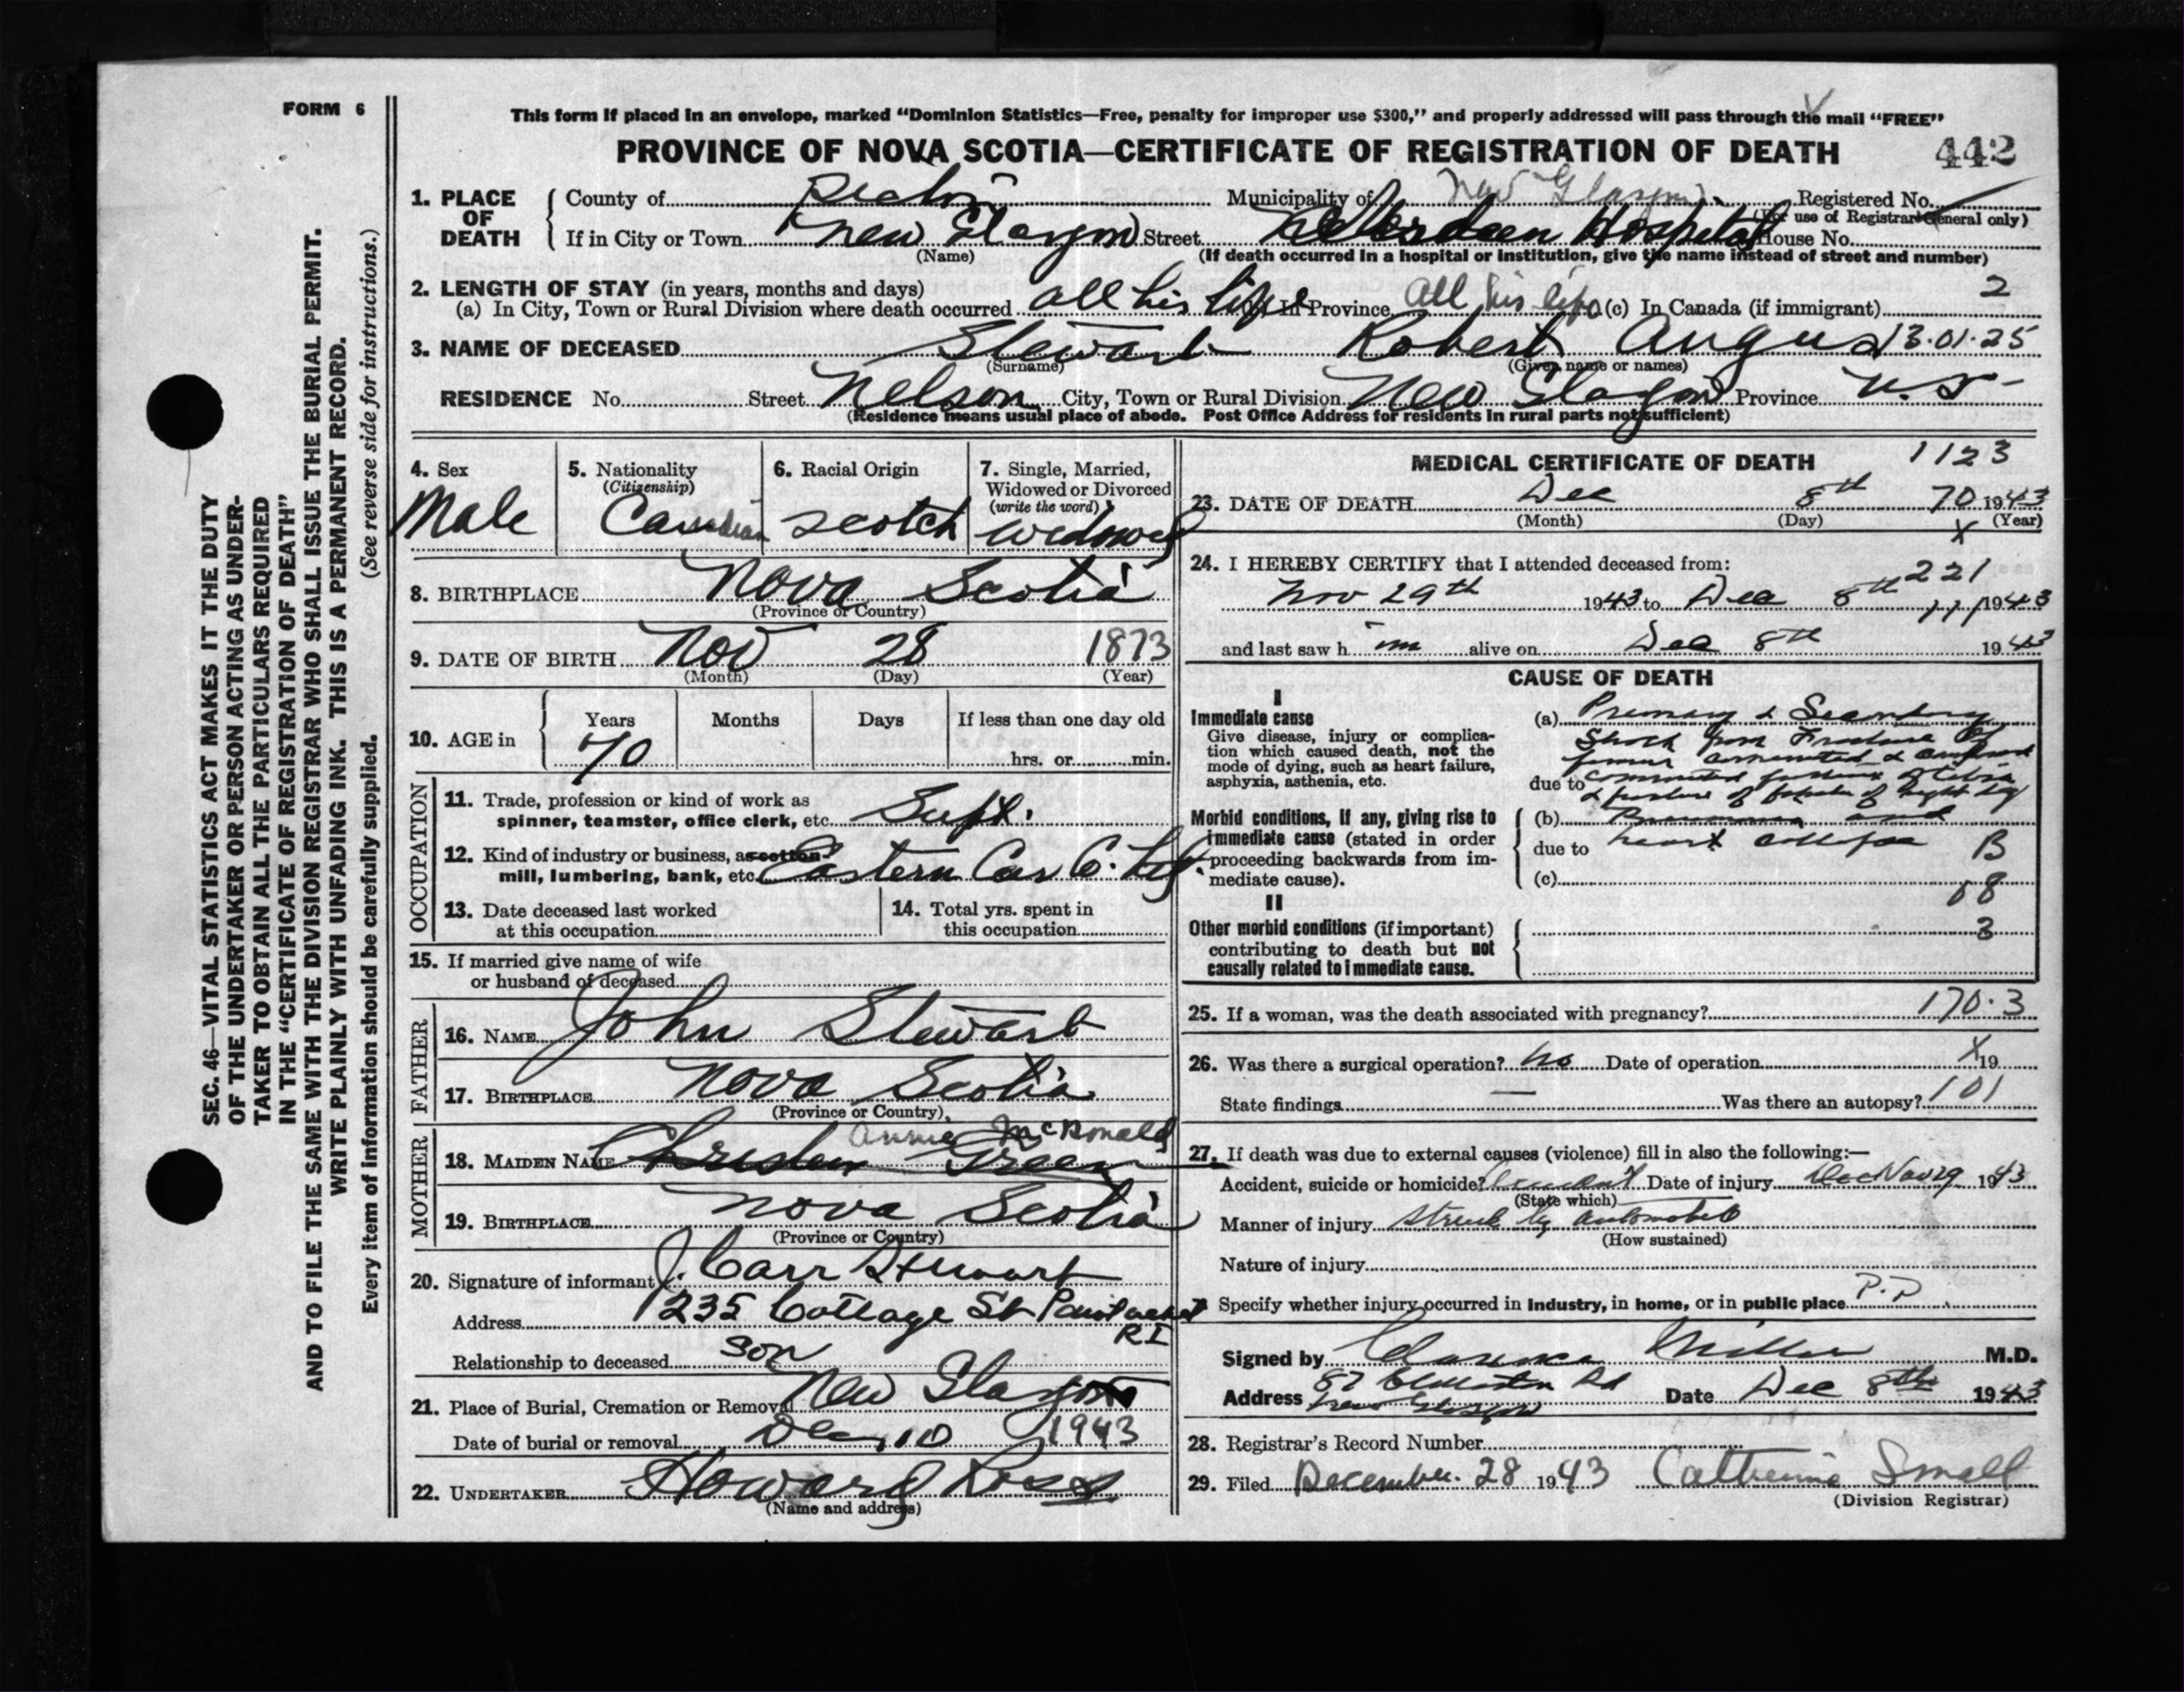 FORM 6
This form if placed in an envelope, marked "Dominion Statistics—Free, penalty for improper use $300," and properly addressed will pass through the mail "FREE"
PROVINCE OF NOVA SCOTIA—CERTIFICATE OF REGISTRATION OF DEATH 442
1. PLACE OF DEATH County of Pictou Municipality of New Glasgow Registered No.
(For use of Registrar General only)
If in City or Town New Glasgow Street Aberdeen Hospital House No.
(Name) (If death occurred in a hospital or institution, give the name instead of street and number)
2. LENGTH OF STAY (in years, months and days) 2
(a) In City, Town or Rural Division where death occurred all his life (b) In Province All his life (c) In Canada (if immigrant)
3. NAME OF DECEASED Stewart Robert Angus 13.01.25
(Surname) (Given name or names)
RESIDENCE No. Street Nelson City, Town or Rural Division New Glasgow Province N.S.
(Residence means usual place of abode. Post Office Address for residents in rural parts not sufficient)
4. Sex Male
5. Nationality (Citizenship) Canadian
6. Racial Origin Scotch
7. Single, Married, Widowed or Divorced (write the word) widowed
8. BIRTHPLACE Nova Scotia
(Province or Country)
9. DATE OF BIRTH Nov 28 1873
(Month) (Day) (Year)
10. AGE in Years Months Days If less than one day old
70 hrs. or min.
OCCUPATION
11. Trade, profession or kind of work as
spinner, teamster, office clerk, etc. Supt.
12. Kind of industry or business, as cotton-
mill, lumbering, bank, etc. Eastern Car Co.
13. Date deceased last worked
at this occupation
14. Total yrs. spent in
this occupation
15. If married give name of wife
or husband of deceased
FATHER
16. NAME John Stewart
17. BIRTHPLACE Nova Scotia
(Province or Country)
MOTHER
Annie McDonald
18. MAIDEN NAME Green
19. BIRTHPLACE Nova Scotia
(Province or Country)
20. Signature of informant J. Carr Stewart
Address 235 Cottage St Pawtucket
RI
Relationship to deceased Son
21. Place of Burial, Cremation or Removal New Glasgow
Date of burial or removal Dec 10 1943
22. UNDERTAKER Howard Ross
(Name and address)
MEDICAL CERTIFICATE OF DEATH 1123
23. DATE OF DEATH Dec 8th 70 1943
(Month) (Day) (Year)
X
24. I HEREBY CERTIFY that I attended deceased from:
221
Nov 29th 1943 to Dec 8th 111 1943
and last saw h im alive on Dec 8th 1943
CAUSE OF DEATH
I
Immediate cause
Give disease, injury or complica-
tion which caused death, not the
mode of dying, such as heart failure,
asphyxia, asthenia, etc.
(a) Primary & Secondary
Shock from Fracture of
femur comminuted & compound
due to comminuted fracture of tibia
& fracture of of right leg
Morbid conditions, if any, giving rise to
immediate cause (stated in order
proceeding backwards from im-
mediate cause).
(b) Pneumonia and
due to heart collapse B
(c) 08
II
Other morbid conditions (if important)
contributing to death but not
causally related to immediate cause.
3
25. If a woman, was the death associated with pregnancy? 170.3
26. Was there a surgical operation? No Date of operation X 19
State findings — Was there an autopsy? 101
27. If death was due to external causes (violence) fill in also the following:—
Accident, suicide or homicide? Accident Date of injury Dec Nov 29 1943
(State which)
Manner of injury Struck by automobile
(How sustained)
Nature of injury
Specify whether injury occurred in Industry, in home, or in public place P.P
Signed by Clarence Miller M.D.
Address 82 Rd Date Dec 8th 1943
New Glasgow
28. Registrar's Record Number
29. Filed December 28 1943 Catherine Small
(Division Registrar)
SEC. 46—VITAL STATISTICS ACT MAKES IT THE DUTY
OF THE UNDERTAKER OR PERSON ACTING AS UNDER-
TAKER TO OBTAIN ALL THE PARTICULARS REQUIRED
IN THE "CERTIFICATE OF REGISTRATION OF DEATH"
AND TO FILE THE SAME WITH THE DIVISION REGISTRAR WHO SHALL ISSUE THE BURIAL PERMIT.
WRITE PLAINLY WITH UNFADING INK. THIS IS A PERMANENT RECORD.
Every item of information should be carefully supplied. (See reverse side for instructions.)